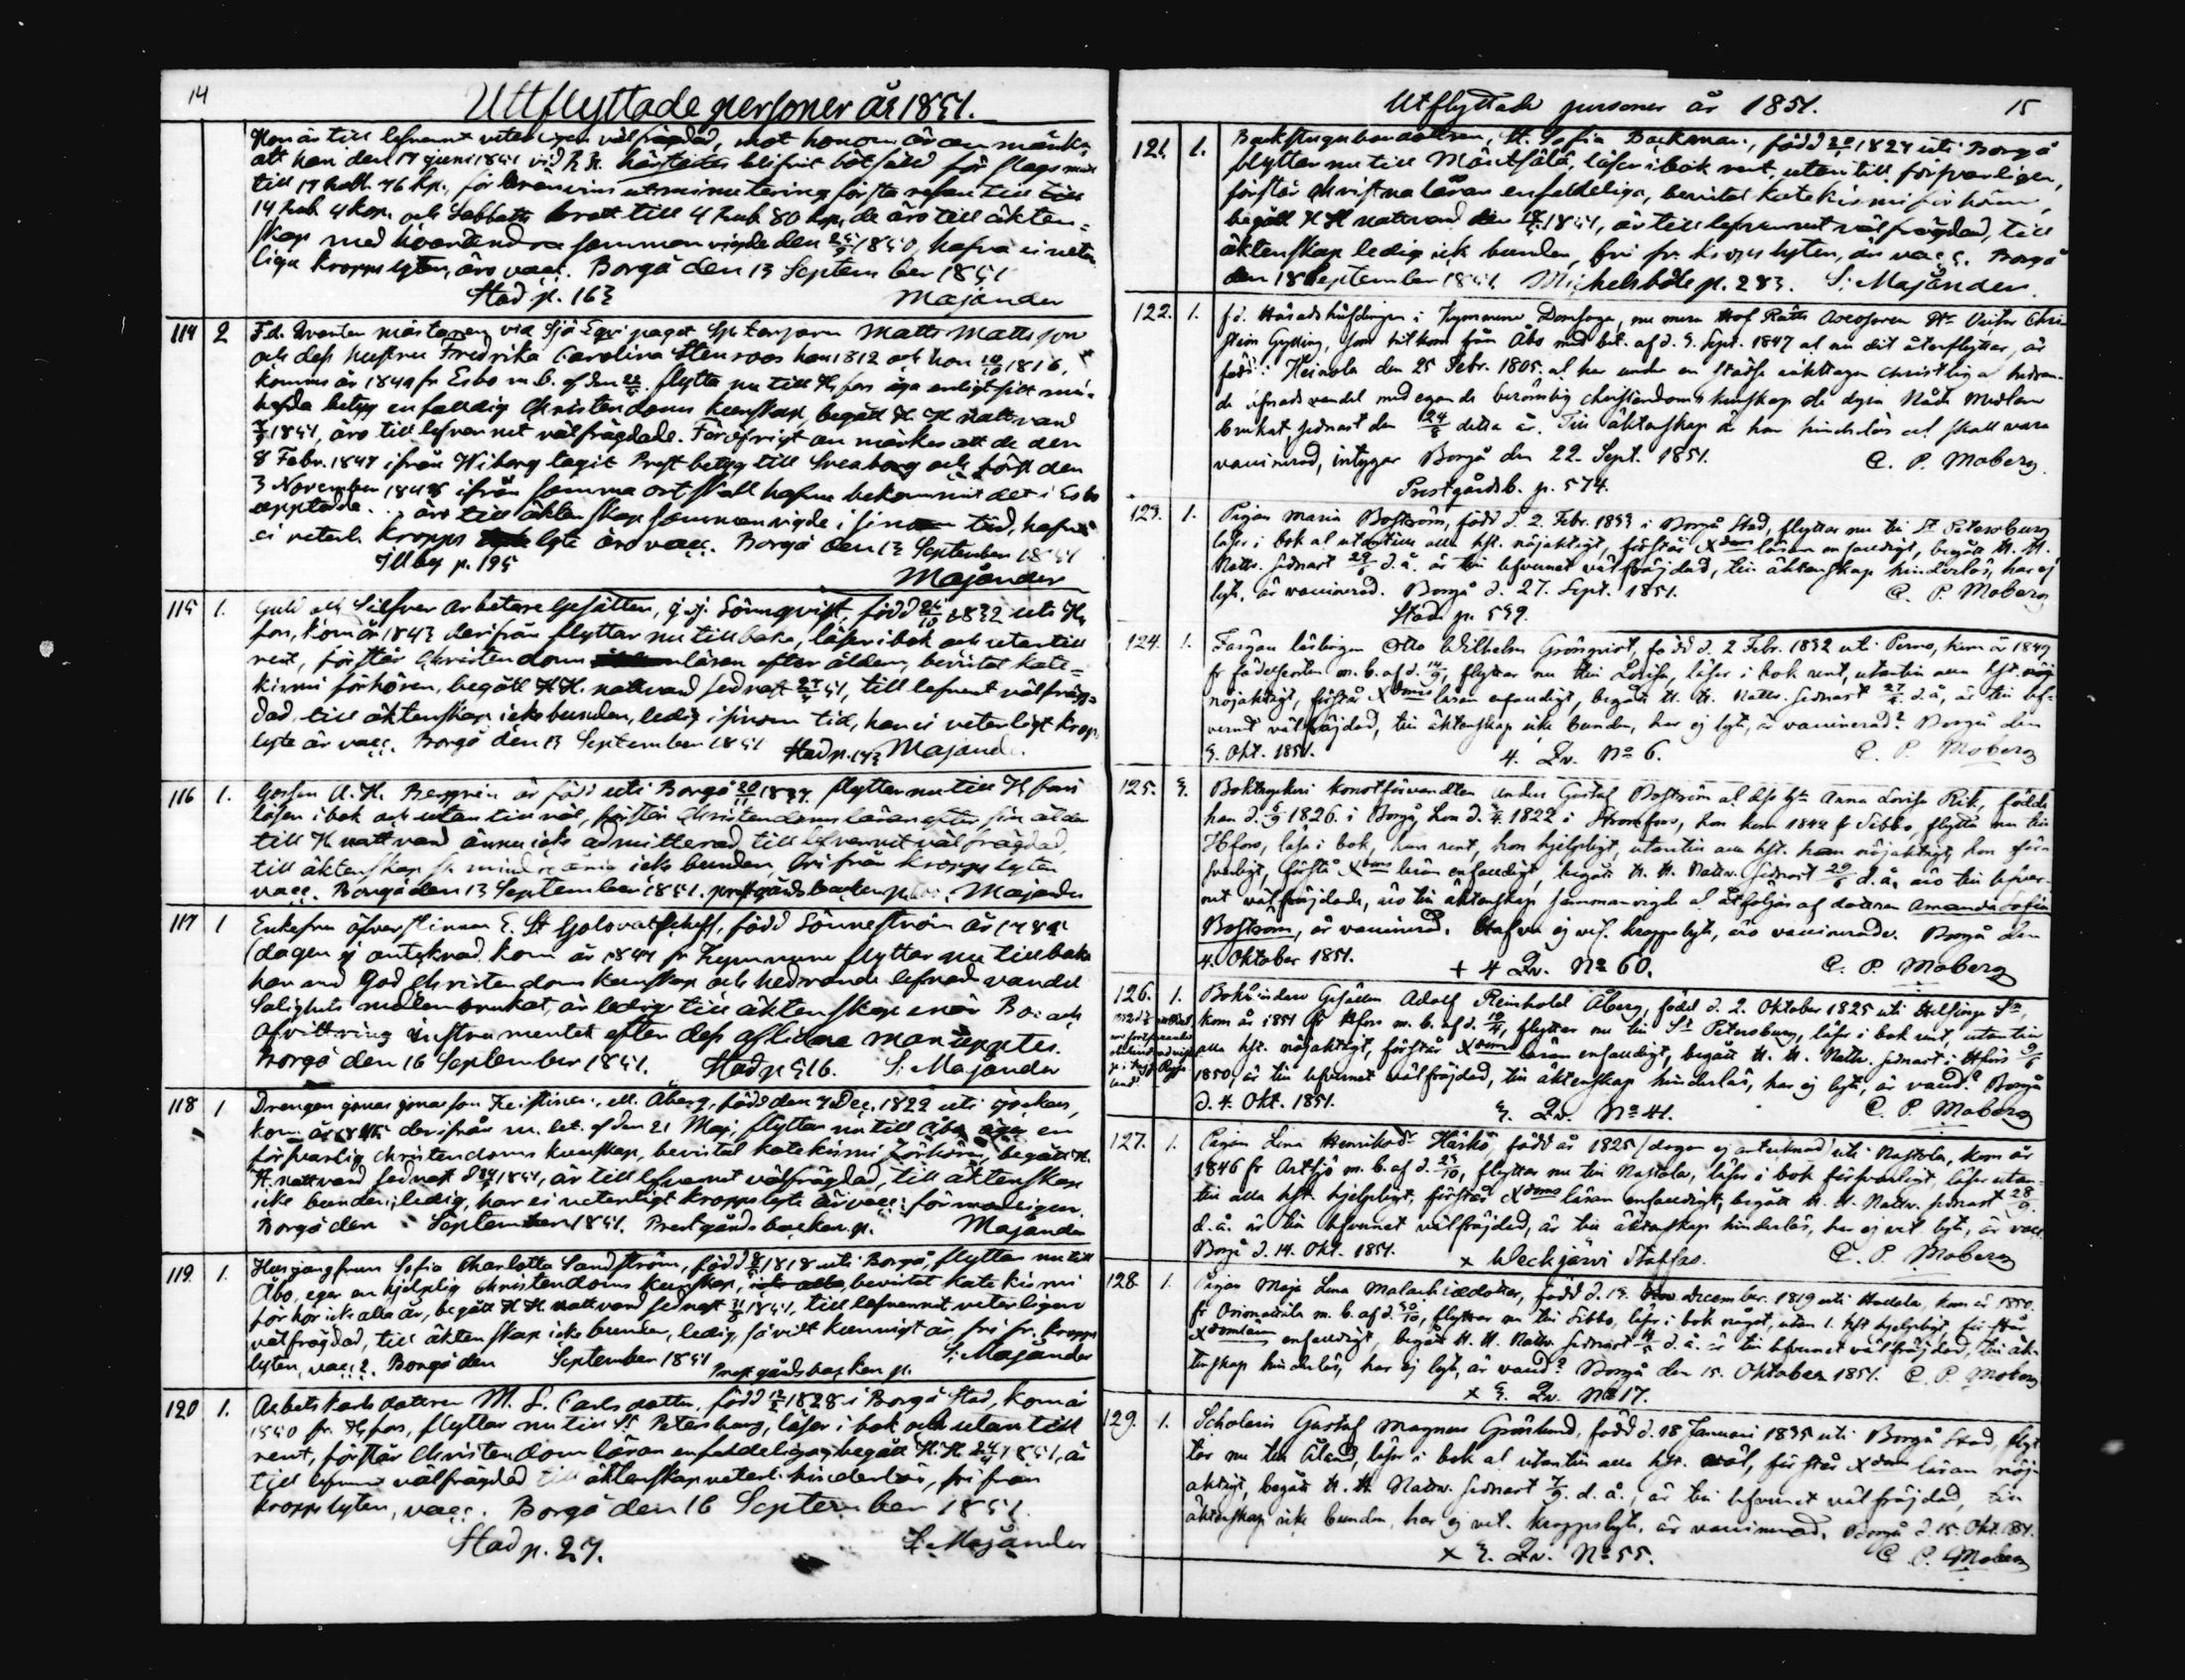 14
Uttflyttade personer år 1851.
Han är till lefvernet veterligen välfrägdad, mot honom är an märkt
att han den 17 juni 1851 vid R. R. härstädes blifvit bötfäld för slagsmål
till 14 rub. 4 kop. och Sabbats brott till 4 Rub. 80 kop. de äro till äkten=
skap med hvarandra sammanvigde den 1850, hafva ei veter
liga kroppslyten, äro vacc. Borgå den 13 September 1851
Stad p. 163 Majander
114 2 F.d. Qvarter mästaren vid Sjö Equipaget Matts Mattsson
och dess hustru Fredrika Carolina Stenroos han 1812 och hon 10/10 1816,
komne år 1849 fr Esbo m. b. af den flytta nu till H:fors äga enligt sitt
hafda betyg enfaldig Christendoms kunskap, begått H. H. Nattvard
1851, äro till lefvernet välfrägdade. Föröfrigt an märkes att de den
8 Febr. 1847 ifrån Wiborg tagit Prest betyg till Sveaborg och först den
3 November 1848 ifrån samma ort skall hafva bekommit det i Esbo
upptedde... äro till äktenskap sammanvigde i sinom tid, hafva
ei veterl. kropps lyte äro vacc. Borgå den 13 September 1851
Illby p. 195
Majander
115 1. Guld och Silfver arbetare Gesällen, G. J. Sönnqvist, född 24/10 1832 uti H:
fors, kom år 1843 derifrån flyttar nu tillbaka, läser i bok och utantill
rent, förstår Christendoms läran efter åldern, bevistat kate=
kismi förhören, begått H H. nattvard sednast 51, till lefvernet välfräg=
dad, till äktenskap icke bunden, ledig i sinom tid, har ei veterligt kropps
lyte är vacc. Borgå den 13 September 1851 Stad p. 143 Majander
116 1. Gossen A. H. Berggrén är född uti Borgå 20/11 1837. flyttar nu till H:fors
läser i bok och utan till väl, förstår Christendoms läran efter sin ålder
till H nattvard ännu icke admitterad, till lefvernet välfrägdad,
till äktenskap icke bunden, fri från kropps lyten
vacc. Borgå den 13 September 1851. prestgårds backen Majander
117 1 Enkefru öfverstinnan E. St Golovatscheff, född Sönneström år 1785
(dagen ej antecknad, kom år 1847 fr Kymmene flyttar nu tillbaka
har med God Christendoms kunskap och hedrande lefnads vandel
Salighets medlen brukat, är ledig till äktenskap när Bo: och
Afvittring instrumentet efter dess aflidne man uppetes.
Borgå den 16 September 1851. Stad p 516. S. Majander
118 1 Drengen Jonas Jonasson Keistinen, ell. Åberg, född den 7 Dec. 1822 uti Jockas,
kom år 1845 derifrån m. bet. af den 21 Maj, flyttar nu till Åbo äger en
försvarlig christendoms kunskap, bevistat katekismi förhören, begått H.
H. nattvard sednast 1851, är till lefvernet välfrägdad, till äktenskap
icke bunden, ledig, har ei veterligt kropps lyte är vacc: förmodligen.
Borgå den September 1851. Prestgårds backen p. Majander
119 1. Husjungfrun Sofia Charlotta Sandström, född 1818 uti Borgå, flyttar nu till
Åbo, eger en hjelplig Christendoms kunskap, bevistat katekismi
förhör icke alla år, begått H H nattvard sednast 1851, till lefvernet veterligen
välfrägdad, till äktenskap icke bunden, ledig, så vitt kunnigt är, fri fr. kropps
lyten, vacc?. Borgå den September 1851 S. Majander
Prestgårdsbacken p.
120 1. Arbetskarls dottren M. L. Carlsdotter, född 12/2 1828 i Borgå Stad, kom år
1850 fr. H:fors, flyttar nu till St Petersburg, läser i bok och utantill
rent, förstår Christendoms läran enfaldeligen, begått H. H. 1851, är
till lefvernet välfrägdad till äktenskap veterl. hinderlös, fri från
kropps lyten, vacc. Borgå den 16 September 1851.
Stad p. 27. S. Majander
Utflyttade personer år 1851. 15
121. 1. Backstugubondottren, H. Sofia Backman, född 1827 uti Borgå
flyttar nu till Mäntsälä, läser i bok rent, utantill försvarligen,
förstår christna läran enfaldeliga, bevistat katekismi förhören,
begått H H nattvard den 1851, är till lefvernet välfrägdad, till
äktenskap ledig ick bunden, fri fr. kropps lyten, är vacc. Borgå
den 18 September 1851 Michelsböle p. 283. S. Majander.
122. 1. fd. Häradshöfdingen i Kymmene Domsaga, nu mera Hof Rätts Assessoren Hr Victor Chri-
stian Gylling, som hitkom från Åbo med bet. af d. 9. Sept. 1847 at nu dit återflyttar, är
född i Heinola den 25 Febr. 1805. at har under en städse iakttagen christlig at hedran-
de lefnads vandel med egande berömlig christendoms kunskap de dyra Nåde Medlen
brukat sednast den 24/8 detta år. Till äktenskap är han hinderlös at skall vara
vaccinerad, intygar Borgå den 22. Sept. 1851. C. P. Moberg.
Prestgårdsb. p. 574.
123. 1. Pigan Maria Boström, född d. 2. Febr. 1833 i Borgå Stad, flyttar nu till St Petersburg
läser i bok at utantill alla hft. nöjaktigt, förstår Xdoms läran enfaldigt, begått H. H.
Nattv. sednast 29/6 d. å. är till lefvernet välfräjdad, till äktenskap hinderlös, har ej
lyte, är vaccinerad. Borgå d. 27. Sept. 1851. C. P. Moberg
Stad p. 539.
124. 1. Färgare lärlingen Otto Wilhelm Grönqvist, född d. 2 Febr. 1832 uti Perno, kom år 1849
fr födelseorten m. b. af d. 14/9, flyttar nu till Lovisa, läser i bok rent, utantill alla hft.
nöjaktigt, förstår Xdoms läran enfaldigt, begått H. H. Nattv. sednast 27/4 d. å, är till lef-
vernet välfräjdad, till äktenskap icke bunden, har ej lyte, är vaccinerad? Borgå den
3. Okt. 1851. 4. Qv. No 6. C. P. Moberg
125. 3. Boktryckeri konstförvandten Anders Gustaf Boström at dess h:u Anna Lovisa Rik, födde
han d. 1826. i Borgå, hon d. 1822 i Strömfors, hon kom 1842 fr Sibbo, flytta nu till
Hfors, läsa i bok, han rent, hon hjelpligt, utantill alla hft. han nöjaktigt, hon för-
svarligt, förstå Xdoms läran enfaldigt, begått H. H. Nattv. sednast 29/6 d. å, äro till lefver-
net välfräjdade, äro till äktenskap sammanvigde at åtföljas af dottren Amanda Sofia
Boström, är vaccinerad. Hafva ej vet. kroppslyte, äro vaccinerade. Borgå den
4. Oktober 1851. + 4 Qv. No 60. C. P. Moberg
126. 1. Bokbindare Gesällen Adolf Reinhold Åberg, född d. 2. Oktober 1825 uti Helsinge Sn,
kom år 1851 fr Hfors m. b. af d. 10/4, flyttar nu till St Petersburg, läser i bok rent, utantill
alla hft. nöjaktigt, förstår Xdoms läran enfaldigt, begått H. H. Nattv. sednast i Hfors
1850, är till lefvernet välfräjdad, till äktenskap hinderlös, har ej lyte, är vacc:d? Borgå
d. 4. Okt. 1851. 3. Qv. No 41. C. P. Moberg
127. 1. Pigan Lena Henriksdr Härkö, född år 1825 (dagen ej antecknad) uti Nastola, kom år
1846 fr Artsjö m. b. af d. 23/10, flyttar nu till Nastola, läser i bok försvarligt, läser utan-
till alla hft. hjelpligt, förstår Xdoms läran enfaldigt, begått H. H. Nattv. sednast 28/9.
d. å. är till lefvernet välfräjdad, är till äktenskap hinderlös, har ej vet. lyte, är vacc
Borgå d. 14. Okt. 1851. x Weckjärvi Staffas. C. P. Moberg
128 1. Pigan Maja Lena Malachiædotter, född d. 19. december. 1819 uti Hadola, kom år 1850.
fr Orimattila m. b. af d. 30/10, flyttar nu till Sibbo, läser i bok något, utan l. hft hjelpligt, förstår
Xdomläran enfaldigt, begått H. H. Nattv. sednast d. å. är till lefvernet välfräjdad, till äk-
tenskap hinderlös, har ej lyte, är vacc:d? Borgå den 15. Oktober 1851. C. P. Moberg
x 3. Qv. No 17.
129. 1. Scholaris Gustaf Magnus Grönlund, född d. 18 Januari 1835 uti Borgå Stad, flyt-
tar nu till Åland, läser i bok at utantill alla hft. väl, förstår Xdoms läran nöj-
aktigt, begått H. H. Nattv. sednast 7/9. d. å., är till lefvernet välfräjdad, till
äktenskap icke bunden, har ej vet. kroppslyte, är vaccinerad. Borgå d. 15. Okt. 1851.
x 3. Qv. No 55. C. P. Moberg